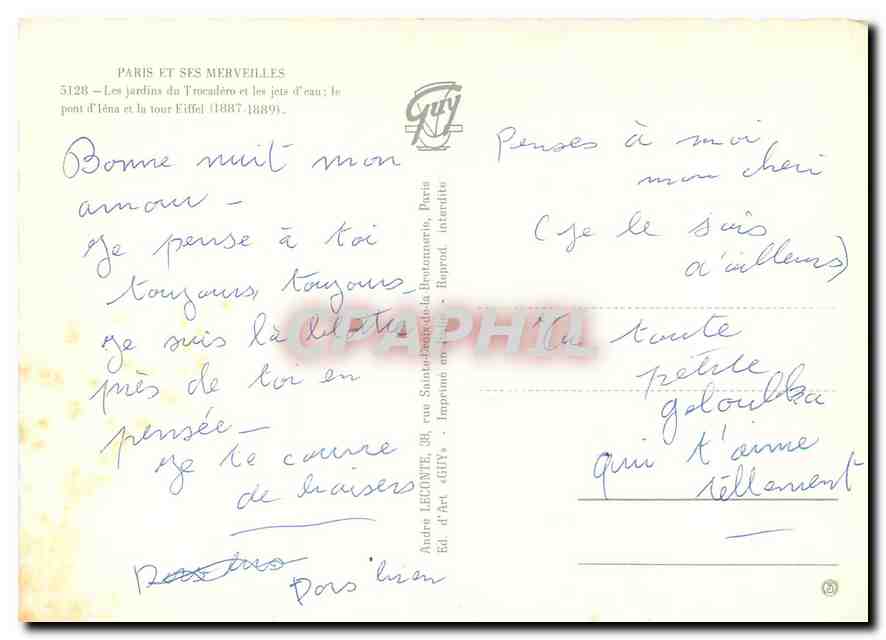 PARIS ET SES MERVEILLES
5128 – Les jardins du Trocadéro et les jets d'eau; le
pont d'Iéna et la tour Eiffel (1887-1889).
Guy
Bonne nuit mon
amour –
Je pense à toi
toujours, toujours –
Je suis là
près de toi en
pensée –
Je te couvre
de baisers
Dors bien
André LECONTE, 38, rue Sainte-Croix-de-la Bretonnerie, Paris
Ed. d'Art «GUY» - Imprimé en Italie - Reprod. interdite
CPAPHIL
Penses à moi
mon cheri
(je le sais
d'ailleurs)
Ta toute
petite
geloubka
qui t'aime
tellement